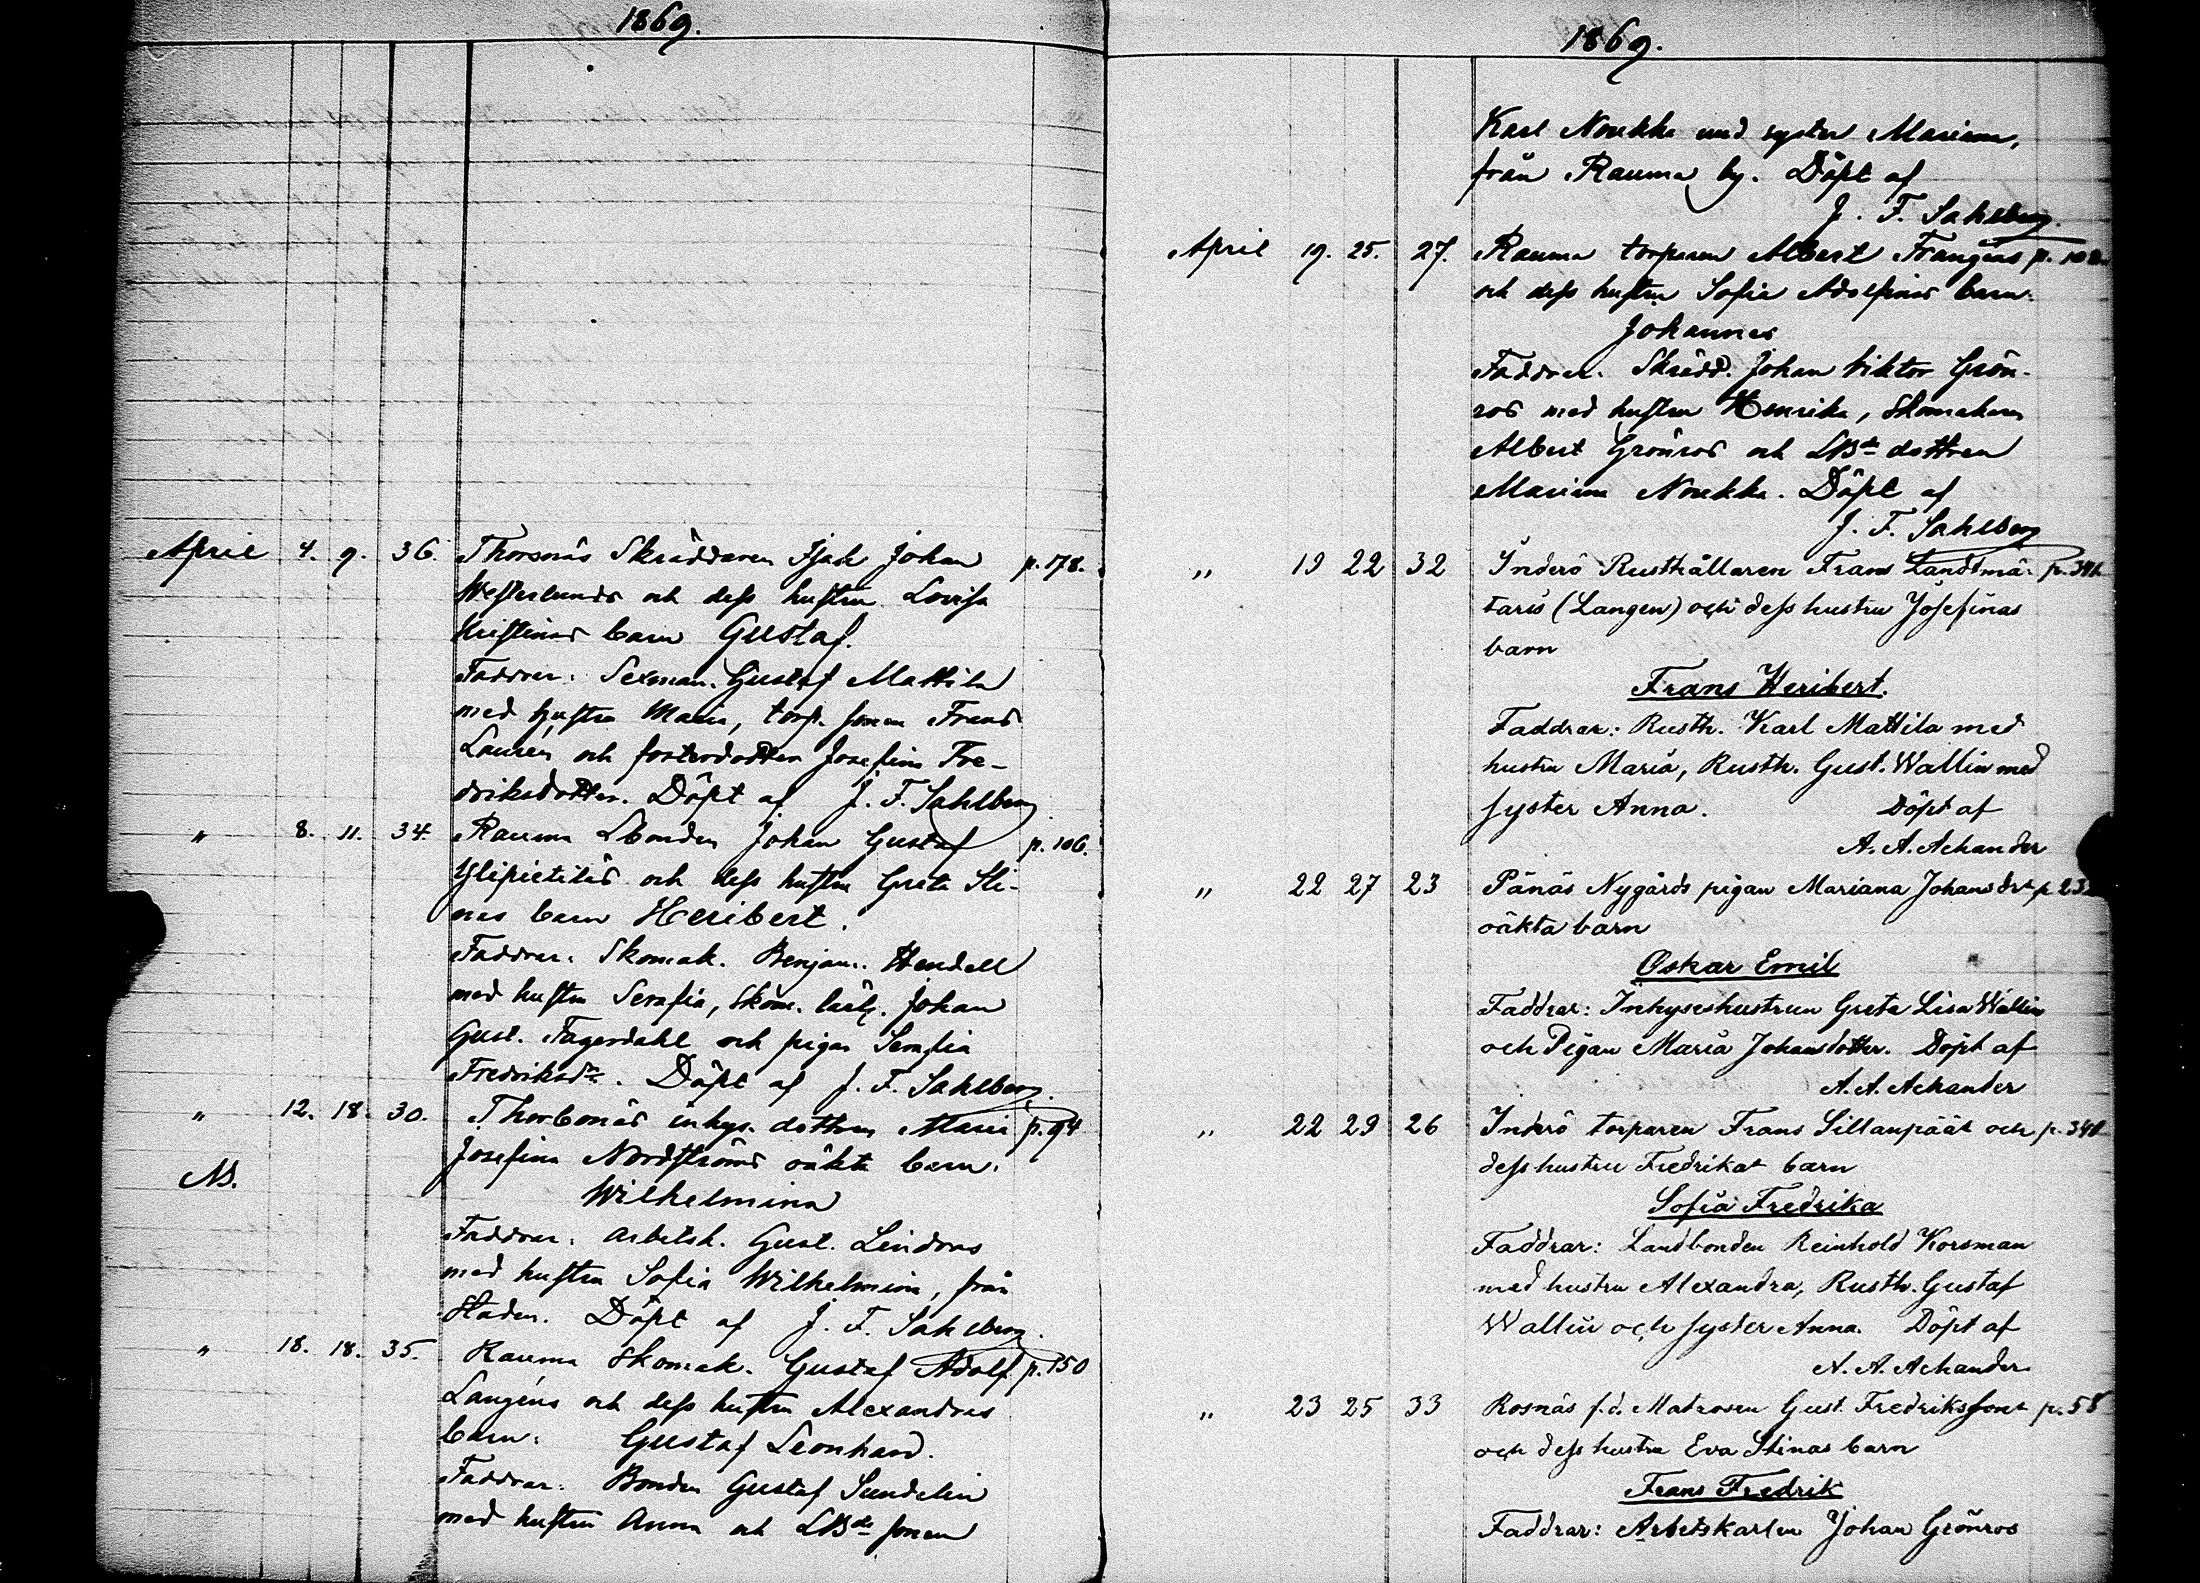 1869.
April 4. 9. 36. Thorsnäs Skräddaren Isak Johan p. 178.
Westerlunds och dess hustru Lovisa
Kristinas barn Gustaf.
Faddrar: Sexman. Gustaf Mattila
med hustru Maria, torp. sonen Frans
Laurén och fosterdottren Josefina Fre-
driksdotter. Döpt af J. F. Sahlberg
" 8. 11. 34. Rauma Lbonden Johan Gustaf p. 106.
Ylipietiläs och dess hustru Greta Sti-
nas barn Heribert.
Faddrar: Skomak. Benjam. Hendell
med hustru Serafia, Skom. lärl. Johan
Gust. Fagerdahl och pigan Serafia
Fredriksdr. Döpt af J. F. Sahlberg.
" 12. 18. 30. Thorbonäs inhys. dottren Maria p. 94
Josefina Nordströms oäkta barn:
NB.
Wilhelmina
Faddrar: arbetsk. Gust. Lindroos
med hustru Sofia Wilhelmina, från
Staden. Döpt af J. F. Sahlberg.
" 18. 18. 35. Rauma Skomak. Gustaf Adolf p. 150
Langéns och dess hustru Alexandras
barn: Gustaf Leonhard.
Faddrar: Bonden Gustaf Sundelin
med hustru Anna och LBde sonen
1869.
Karl Noukka med syster Mariana,
från Rauma by. Döpt af
J. F. Sahlberg.
April 19. 25. 27. Rauma torparen Albert Frangéns p. 102.
och dess hustru Sofia Adolfinas barn:
Johannes
Faddrar: Skrädd. Johan Viktor Grön-
ros med hustru Henrika, Skomakaren
Albert Grönros och LBde dottren
Mariana Noukka. Döpt af
J. F. Sahlberg
" 19 22 32 Inderö Rusthållaren Frans Landtmä- p. 341
taris (Langen) och dess hustru Josefinas
barn
Frans Heribert.
Faddrar: Rusth. Karl Mattila med
hustru Maria, Rusth. Gust. Wallin med
syster Anna. Döpt af
A. A. Achander
" 22 27 23 Pänäs Nygårds pigan Mariana Johansdrs p. 23
oäkta barn
Oskar Emil
Faddrar: Inhyseshustrun Greta Lisa Wallin
och Pigan Maria Johansdotter. Döpt af
A. A. Achander
" 22 29 26 Inderö torparen Frans Sillanpääs och p. 341
dess hustru Fredrikas barn
Sofia Fredrika
Faddrar: Landbonden Reinhold Korsman
med hustru Alexandra, Rusth. Gustaf
Wallin och syster Anna. Döpt af
A. A. Achander
" 23 25 33 Rosnäs f.d. Matrosen Gust. Fredrikssons p. 58
och dess hustru Eva Stinas barn
Frans Fredrik
Faddrar: Arbetskarlen Johan Grönros